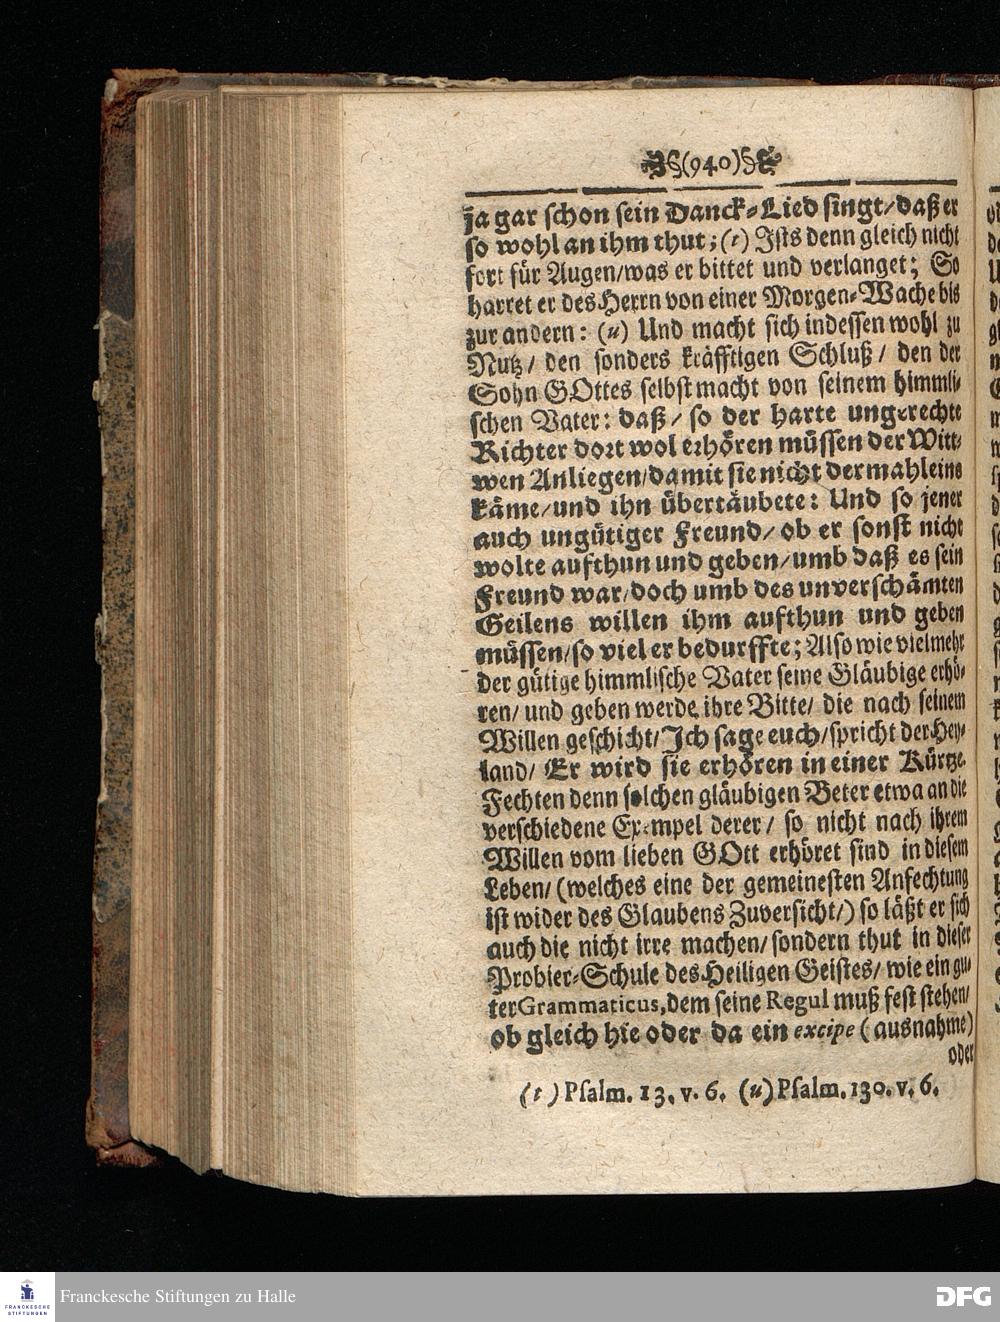 §(940)§
ja gar schon sein Danck-Lied singt/daß er
so wohl an ihm thut; (t) Ists denn gleich nicht
fort für Augen/was er bittet und verlanget; So
harret er des Herrn von einer Morgen-Wache bis
zur andern: (u) Und macht sich indessen wohl zu
Nutz/ den sonders kräfftigen Schluß/ den der
Sohn GOttes selbst macht von seinem himmli-
schen Vater: daß/ so der harte ungerechte
Richter dort wol erhören müssen der Witt-
wen Anliegen/damit sie nicht dermahleins
käme/und ihn übertäubete: Und so jener
auch ungütiger Freund/ ob er sonst nicht
wolte aufthun und geben/umb daß es sein
Freund war/doch umb des unverschämten
Geilens willen ihm aufthun und geben
müssen/so viel er bedurffte; Also wie vielmehr
der gütige himmlische Vater seine Gläubige erhö-
ren/ und geben werde ihre Bitte/ die nach seinem
Willen geschicht/Ich sage euch/spricht der Hey-
land/ Er wird sie erhören in einer Kürtze.
Fechten denn solchen gläubigen Beter etwa an die
verschiedene Exempel derer/ so nicht nach ihrem
Willen vom lieben GOtt erhöret sind in diesem
Leben/ (welches eine der gemeinesten Anfechtung
ist wider des Glaubens Zuversicht/) so läßt er sich
auch die nicht irre machen/sondern thut in dieser
Probier-Schule des Heiligen Geistes/ wie ein gu-
ter Grammaticus, dem seine Regul muß fest stehen/
ob gleich hie oder da ein excipe (ausnahme)
oder
(t) Psalm. 13. v. 6. (u) Psalm. 130. v. 6.
FRANCKESCHE
STIFTUNGEN
Franckesche Stiftungen zu Halle
DFG